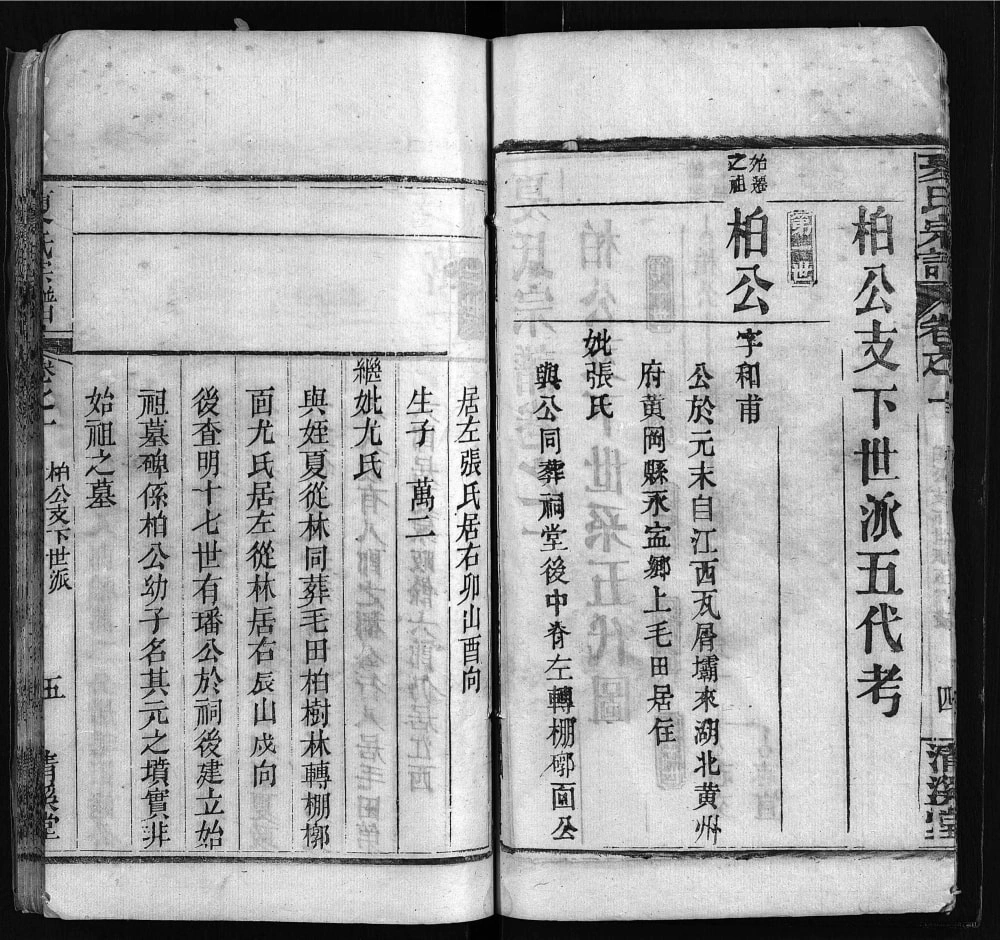 夏氏宗譜
卷之一
四
清溪堂
柏公支下世派五代考
第一世
始遷
之祖
柏公
字和甫
公於元末自江西瓦屑壩來湖北黃州
府黃岡縣永寍鄉上毛田居住
妣張氏
與公同葬祠堂後中脊左轉棚槨面公
居左張氏居右卯山酉向
生子萬二
繼妣尤氏
與姪夏從林同葬毛田柏樹林轉棚槨
面尤氏居左從林居右辰山戌向
後查明十七世有璠公於祠後建立始
祖墓碑係柏公幼子名其元之墳實非
始祖之墓
夏氏宗譜
卷之一
柏公支下世派
五
清溪堂